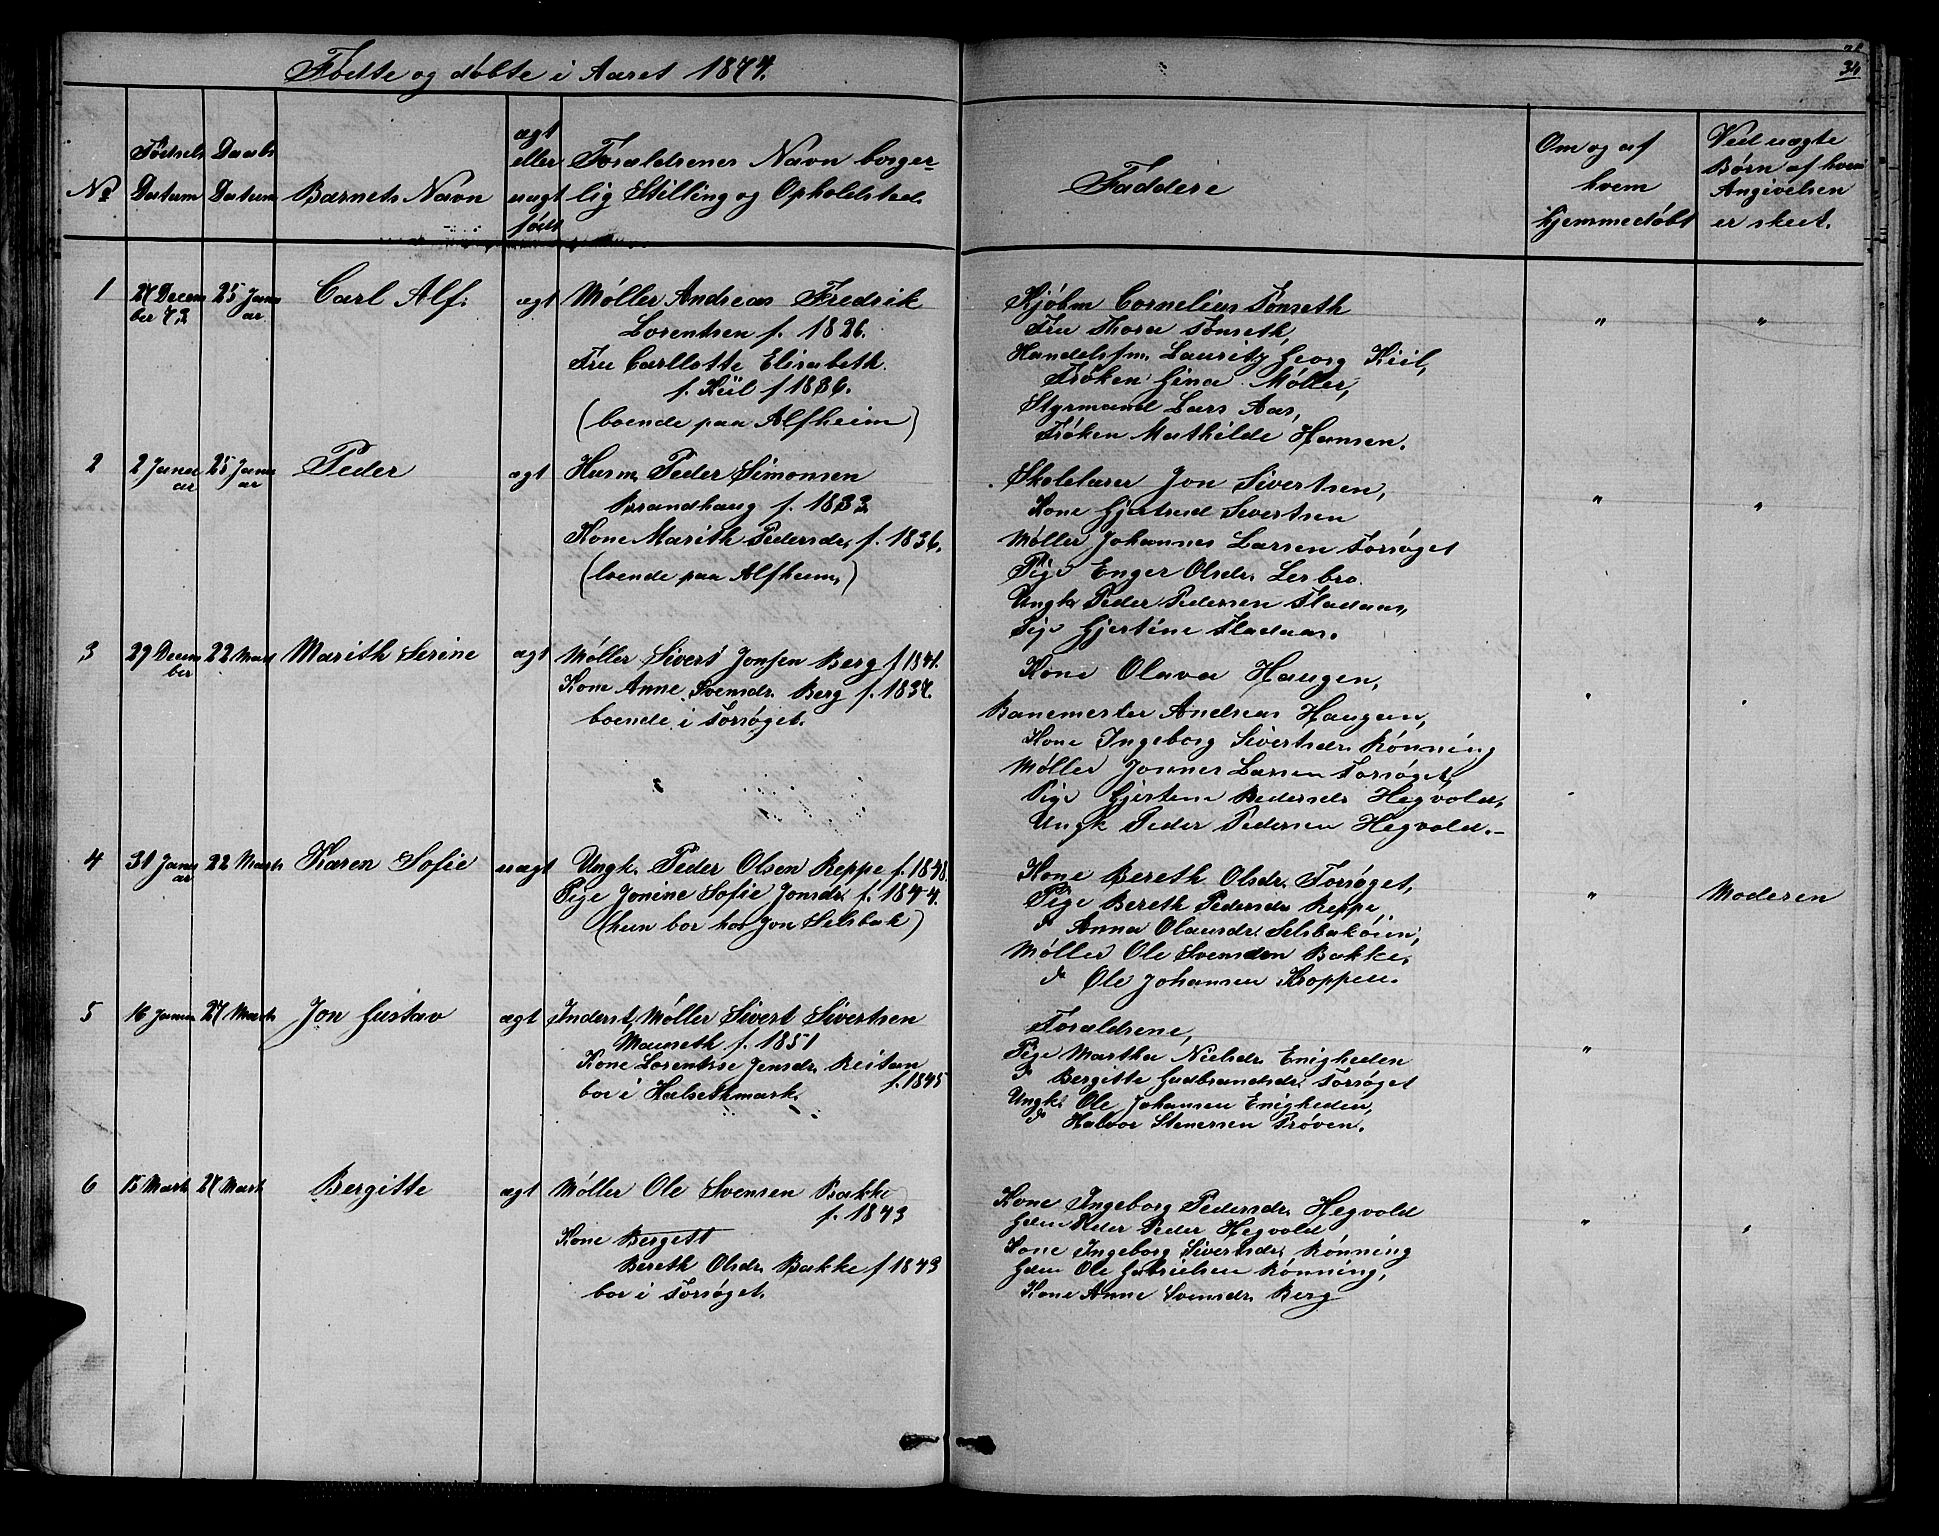 Fødte og døbte i Aaret 1874.
34
No
Fødsels Datum
Daabs Datum
Barnets Navn
ægt eller uægt født
Forældrenes Navn borger-
lig Stilling og Opholdsted.
Faddere
Om og af
hvem
hjemmedøbt
Ved uægte
Børn af hvem
Angivelsen
er skeet.
1 27 Decem 25 Janu Carl Alf. ægt Møller Andreas Fredrik
ber 73 ar
Lorentsen f. 1826.
Fru Carllotte Elisabeth
f. Kiil f 1836.
(boende paa Alfheim)
Kjøbm Cornelius Tønseth
Fru Thora Tønseth,
Handelsfm. Lauritz Georg Kiil,
Frøken Gina Møller,
Styrmand Lars Aas,
Frøken Mathilde Hansen.
" "
2 2 Janu 25 Janu Peder ægt Husm. Peder Simonsen
ar ar
Brandhaug f. 1833
Kone Marith Pedersdr. f. 1836.
(boende paa Alfheim,)
Skolelærer Jon Sivertsen,
Kone Gjertrud Sivertsen
Møller Johannes Larsen Forsøget
Pige Enger Olsdr. Lerbro.
Ungk Peder Pedersen Fladaas,
Pige Gjertine Fladaas.
" "
3 29 Decem 22 Mart Marith Serine ægt Møller Sivert Jonsen Berg f 1841.
ber
Kone Anne Svensdr. Berg f. 1837.
boende i Forsøget.
Kone Olava Haugen,
Banemester Andreas Haugen,
Kone Ingeborg Sivertsdr. Rønning
Møller Jonnes Larsen Forsøget,
Pige Gjertine Pedersdr Hegvold,
Ungk Peder Pedersen Hegvold.-
" "
4 31 Janu 22 Marts Karen Sofie uægt Ungk. Peder Olsen Reppe f. 1848.
ar
Pige Jonine Sofie Jonsdr f. 1844.
(hun bor hos Jon Selsbak)
Kone Bereth Olsdr. Forsøget,
Pige Bereth Pedersdr Reppe
d Anna Olausdr. Selsbakøien,
Møller Ole Svensden Bakke,
d Ole Johansen Kroppen.
" Moderen
5 16 Janu 27 Marts Jon Gustav ægt Inderst, Møller Sivert Sivertsen
Mauseth f. 1851
Kone Lorentse Jensdr. Reitan
f. 1845
bor i Halsethmark.
Forældrene,
Pige Martha Nielsdr. Enigheden
d Bergitte Gudbrandsdr. Forsøget
Ungk. Ole Johansen Enigheden,
d Halvor Stenersen Prøven.
"
6 15 Marts 27 Mart Bergitte ægt Møller Ole Svensen Bakke
f. 1843
Kone Bergett
Bereth Olsdr. Bakke f 1843
bor i Forsøget.
Kone Ingeborg Pedersdr. Hegvold
Gdm Peder Hegvold
Kone Ingeborg Sivertsdr. Rønning
Gdm Ole Gabrielsen Rønning,
Kone Anne Svensdr. Berg
" "